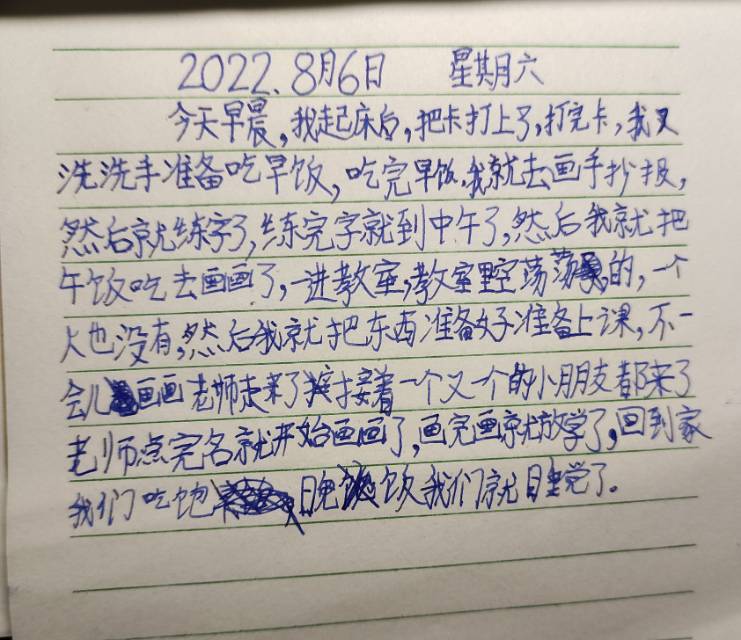 2022.8月6日 星期六
今天早晨,我起床后,把卡打上了,打完卡,我又
洗洗手准备吃早饭,吃完早饭.我就去画手抄报,
然后就练字了,练完字就到中午了,然后我就把
午饭吃去画画了,一进教室,教室里空荡荡的,一个
人也没有,然后我就把东西准备好准备上课,不一
会儿画画老师走来了接着一个又一个的小朋友都来了
老师点完名就开始画画了,画完画就放学了,回到家
我们吃饱晚饭我们就睡觉了。